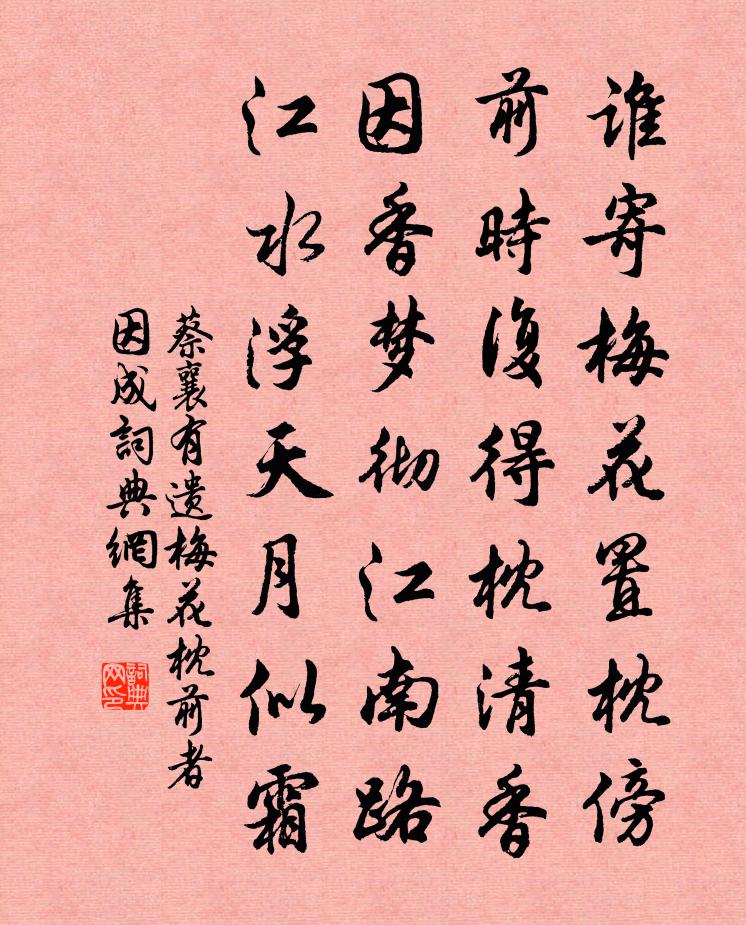 谁寄梅花置枕傍
前時復得枕清香
因香梦彻江南路
江水浮天月似霜
蔡襄有遗梅花枕前者
因成詞典網集
詞典
网印